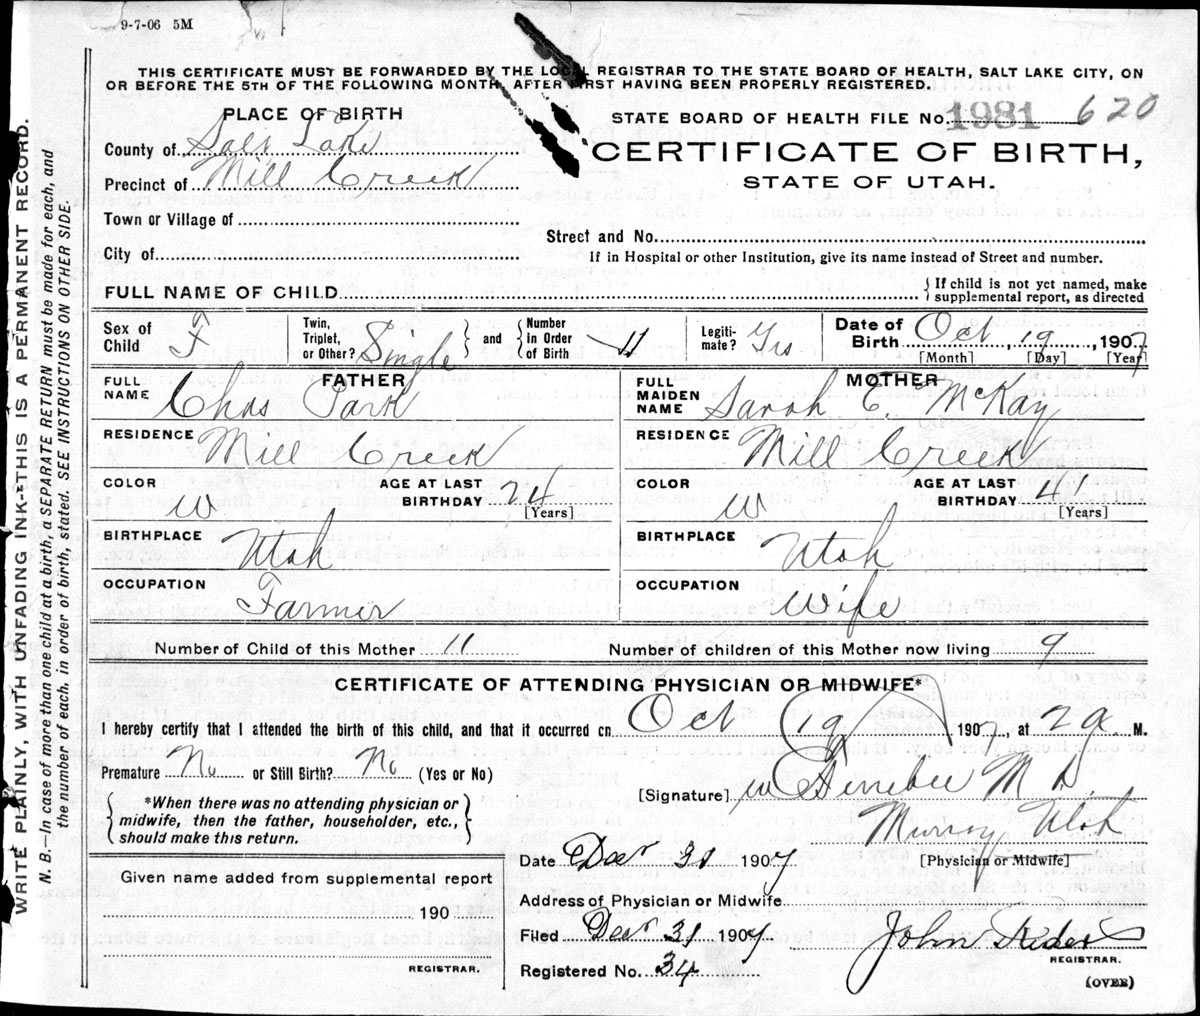 9-7-06 5M
THIS CERTIFICATE MUST BE FORWARDED BY THE LOCAL REGISTRAR TO THE STATE BOARD OF HEALTH, SALT LAKE CITY, ON
OR BEFORE THE 5TH OF THE FOLLOWING MONTH, AFTER FIRST HAVING BEEN PROPERLY REGISTERED.
PLACE OF BIRTH
STATE BOARD OF HEALTH FILE No. 1981 620
County of Salt Lake
CERTIFICATE OF BIRTH,
Precinct of Mill Creek
STATE OF UTAH.
Town or Village of
Street and No.
City of
If in Hospital or other Institution, give its name instead of Street and number.
FULL NAME OF CHILD
{If child is not yet named, make
supplemental report, as directed
Sex of Child F
Twin, Triplet, or Other? Single and {Number in Order of Birth 11
Legiti-mate? Yrs
Date of Birth Oct 19, 1907
[Month] [Day] [Year]
FATHER
MOTHER
FULL NAME Chas Park
FULL MAIDEN NAME Sarah E. McKay
RESIDENCE Mill Creek
RESIDENCE Mill Creek
COLOR W
AGE AT LAST BIRTHDAY 24
[Years]
COLOR W
AGE AT LAST BIRTHDAY 4
[Years]
BIRTHPLACE Utah
BIRTHPLACE Utah
OCCUPATION Farmer
OCCUPATION Wife
Number of Child of this Mother 11
Number of children of this Mother now living 9
CERTIFICATE OF ATTENDING PHYSICIAN OR MIDWIFE*
I hereby certify that I attended the birth of this child, and that it occurred on Oct 19, 1907, at 2 a M.
Premature No or Still Birth? No (Yes or No)
[Signature] Ferrebee M D.
{*When there was no attending physician or
midwife, then the father, householder, etc.,
should make this return.}
Murray Utah
[Physician or Midwife]
Date Dec 31 1907
Given name added from supplemental report
190
REGISTRAR.
Address of Physician or Midwife
Filed Dec 31 1907
John
REGISTRAR.
Registered No. 34
(OVER)
WRITE PLAINLY, WITH UNFADING INK—THIS IS A PERMANENT RECORD.
N. B.—In case of more than one child at a birth, a SEPARATE RETURN must be made for each, and
the number of each, in order of birth, stated. SEE INSTRUCTIONS ON OTHER SIDE.